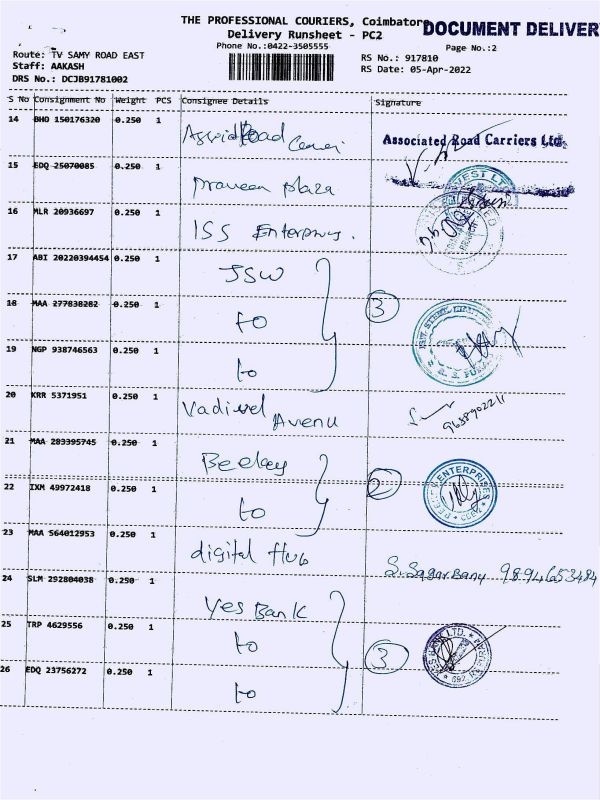 THE PROFESSIONAL COURIERS, Coimbatore
DOCUMENT DELIVER
Delivery Runsheet - PC2
Phone No.:0422-3505555
Page No.:2
Route: TV SAMY ROAD EAST
Staff: AAKASH
DRS No.: DCJB91781002
RS No.: 917810
RS Date: 05-Apr-2022
S No Consignment No Weight PCS Consignee Details Signature
14 BHO 150176320 0.250 1 Road
Associated Road Carriers Ltd.
15 EDQ 25070085 0.250 1 praveen plaza
16 MLR 20936697 0.250 1 ISS Enterprises.
17 ABI 20220394454 0.250 1 JSW
18 MAA 277838282 0.250 1 to 3
19 NGP 938746563 0.250 1 to
20 KRR 5371951 0.250 1 Vadivel Avenu
21 MAA 283395745 0.250 1 Beekay
22 IXM 49972418 0.250 1 to 2
ENTERPRISES
23 MAA 564012953 0.250 1 digital Hub 9894653484
24 SLM 292804038 0.250 1 Yes Bank
25 TRP 4629556 0.250 1 to 3
YES BANK LTD.
26 EDQ 23756272 0.250 1 to